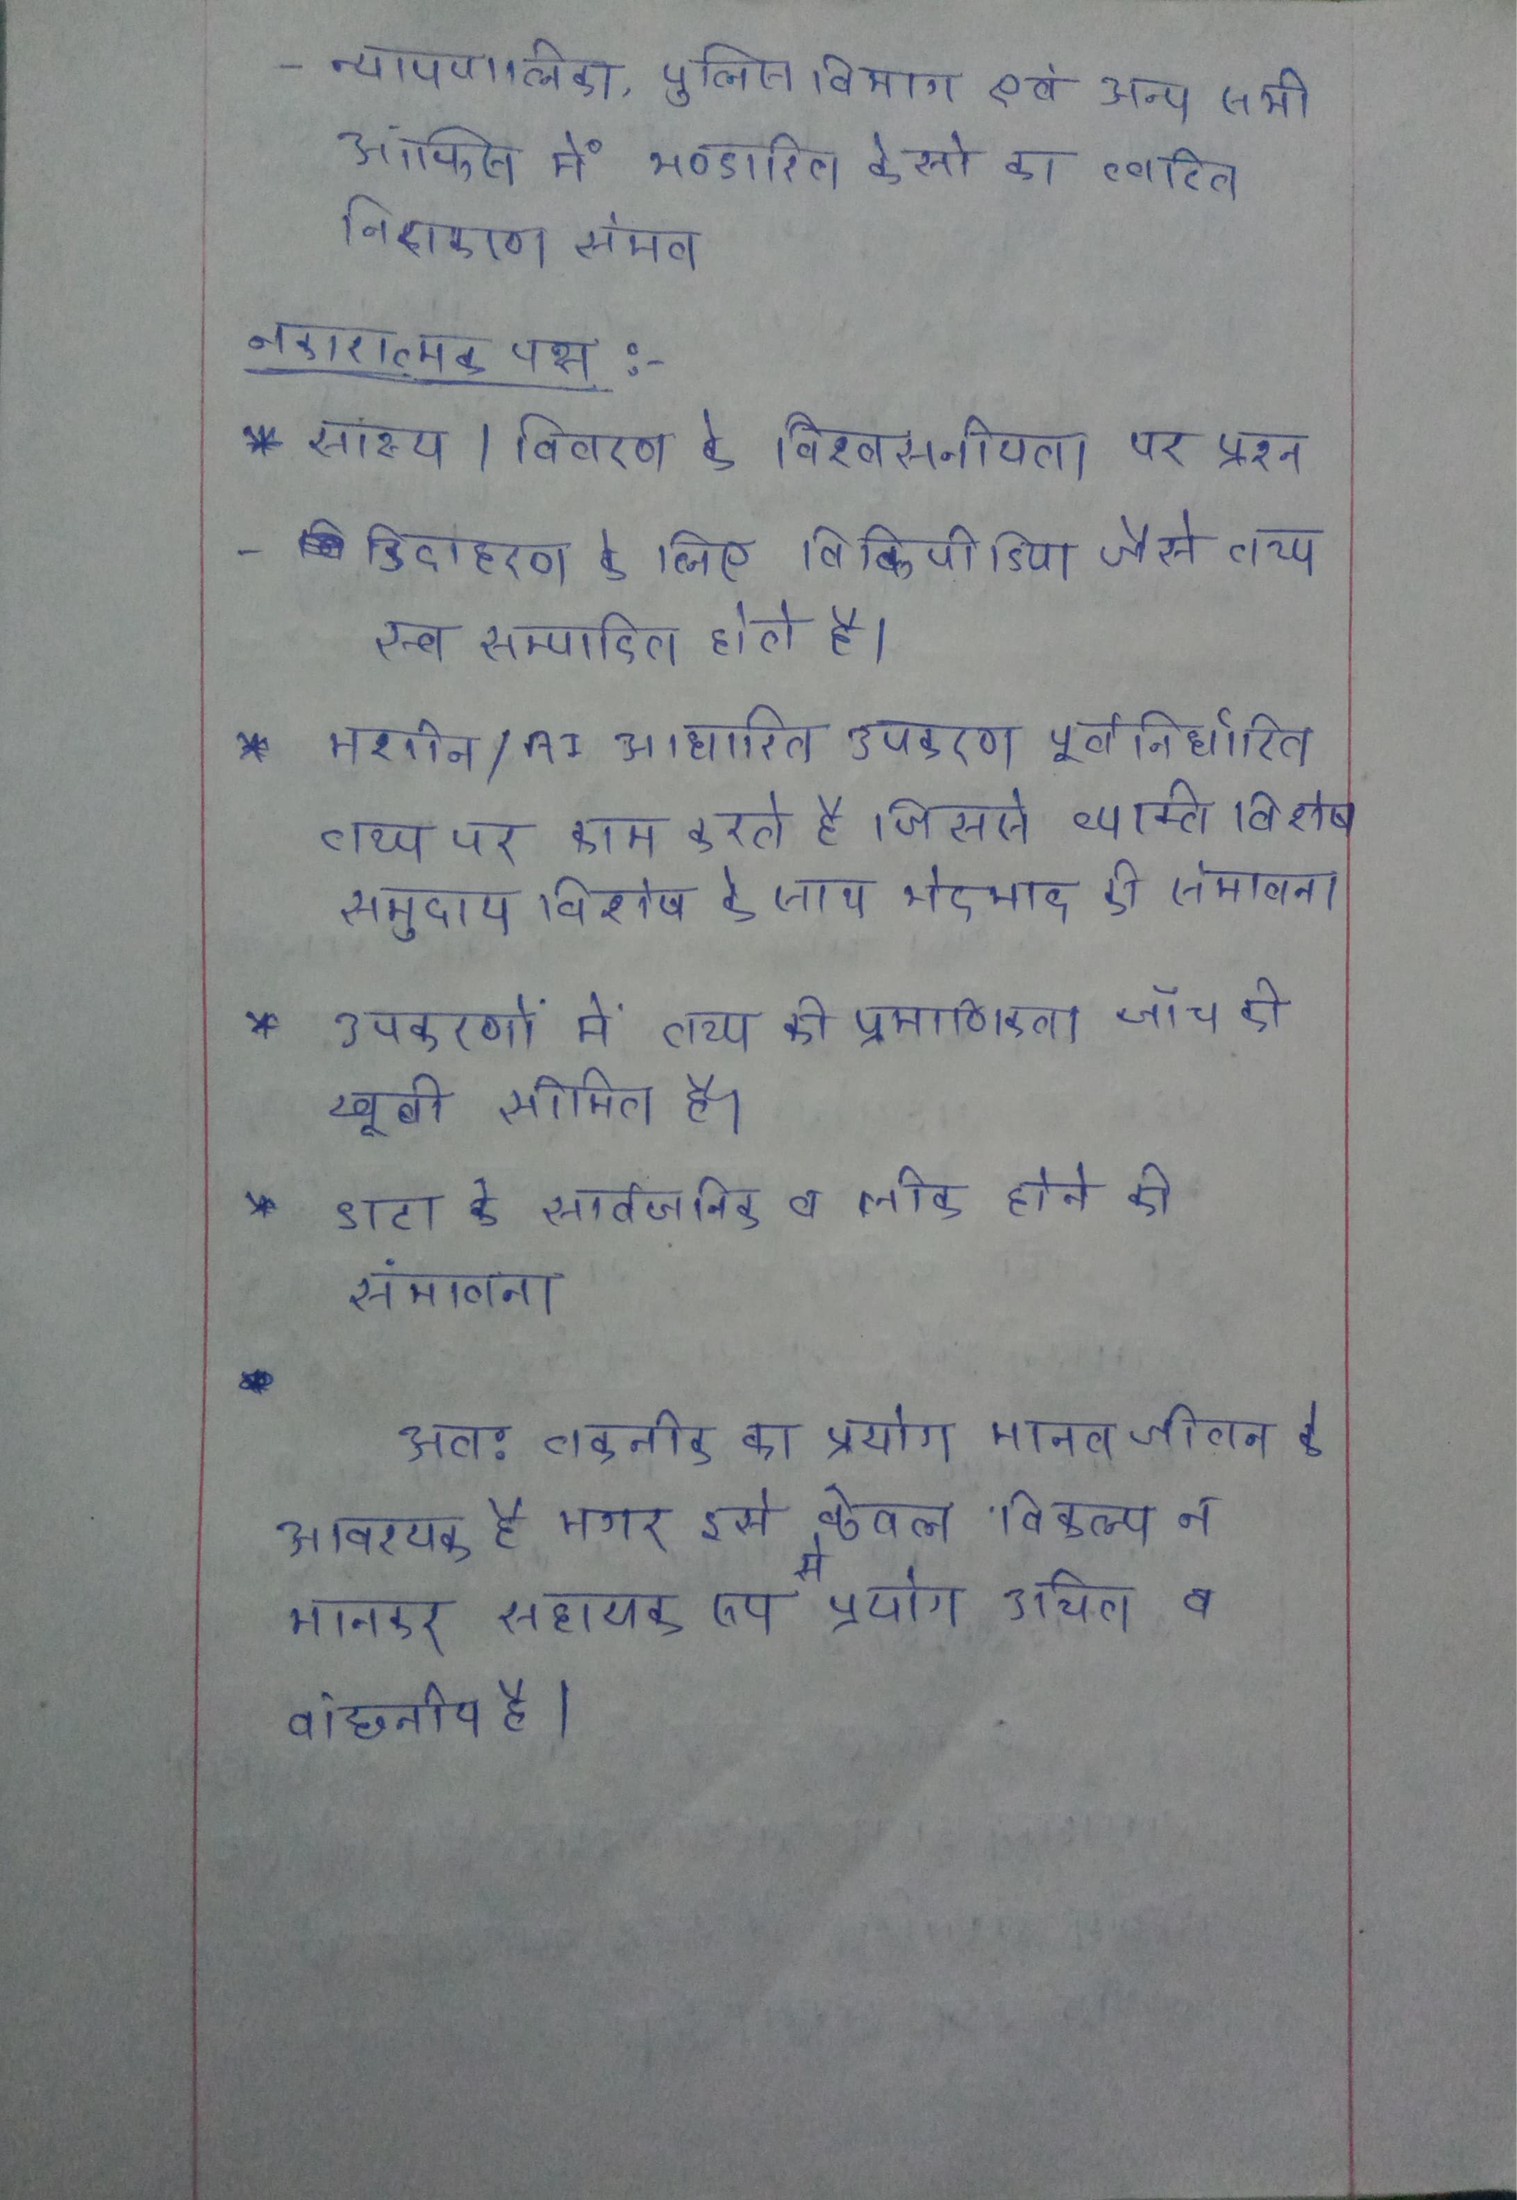 - न्यायपालिका, पुलिस विभाग एवं अन्य सभी
ऑफिस में भण्डारित केसो का त्वरित
निराकरण संभव
नकारात्मक पक्ष :-
* सांख्य / विवरण के विश्वसनीयता पर प्रश्न
- उदाहरण के लिए विकिपीडिया जैसे तथ्य
स्व सम्पादित होते है।
* मशीन/AI आधारित उपकरण पूर्वनिर्धारित
तथ्य पर काम करते है जिससे व्यक्ति विशेष
समुदाय विशेष के साथ भेदभाव की संभावना
* उपकरणों में तथ्य की प्रमाणिकता जाँच की
खूबी सीमित है।
* डाटा के सार्वजनिक व लीक होने की
संभावना
अतः तकनीक का प्रयोग मानव जीवन के
आवश्यक है मगर इसे केवल विकल्प न
मानकर सहायक रूप में प्रयोग उचित व
वांछनीय है।